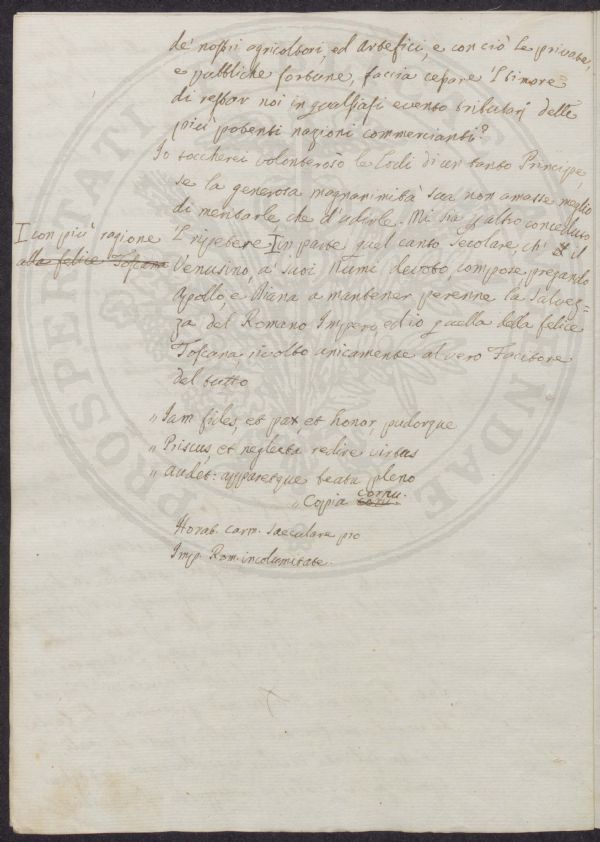 de' nostri agricoltori, ed artefici, e con ciò le private,
e pubbliche fortune, faccia cessare 'l timore
di restar noi in qualsisi evento tributarj delle
più potenti nazioni commercianti?
Io toccherei volonteroso le lodi di un tanto Principe,
se la generosa magnanimità sua non amasse meglio
di meritarle che d'udirle. Mi sia p altro conceduto
I con più ragione
alla felice Toscana
'l ripetere I in parte quel canto secolare ch' il
Venusino, a' suoi Numi devoto, compose pregando
Apollo, e Diana a mantener perenne la salvez=
za del Romano Impero, ed io quella della felice
Toscana rivolto unicamente al vero Facitore
del tutto
" Iam fides, et pax, et honor, pudorque
" Priscus, et neglecta redire virtus
" Audet: apparetque beata pleno
" Copia cornu.
Horat. carm. saeculare pro
Imp. Rom. incolumitate.
PROSPERITATI AUGENDAE